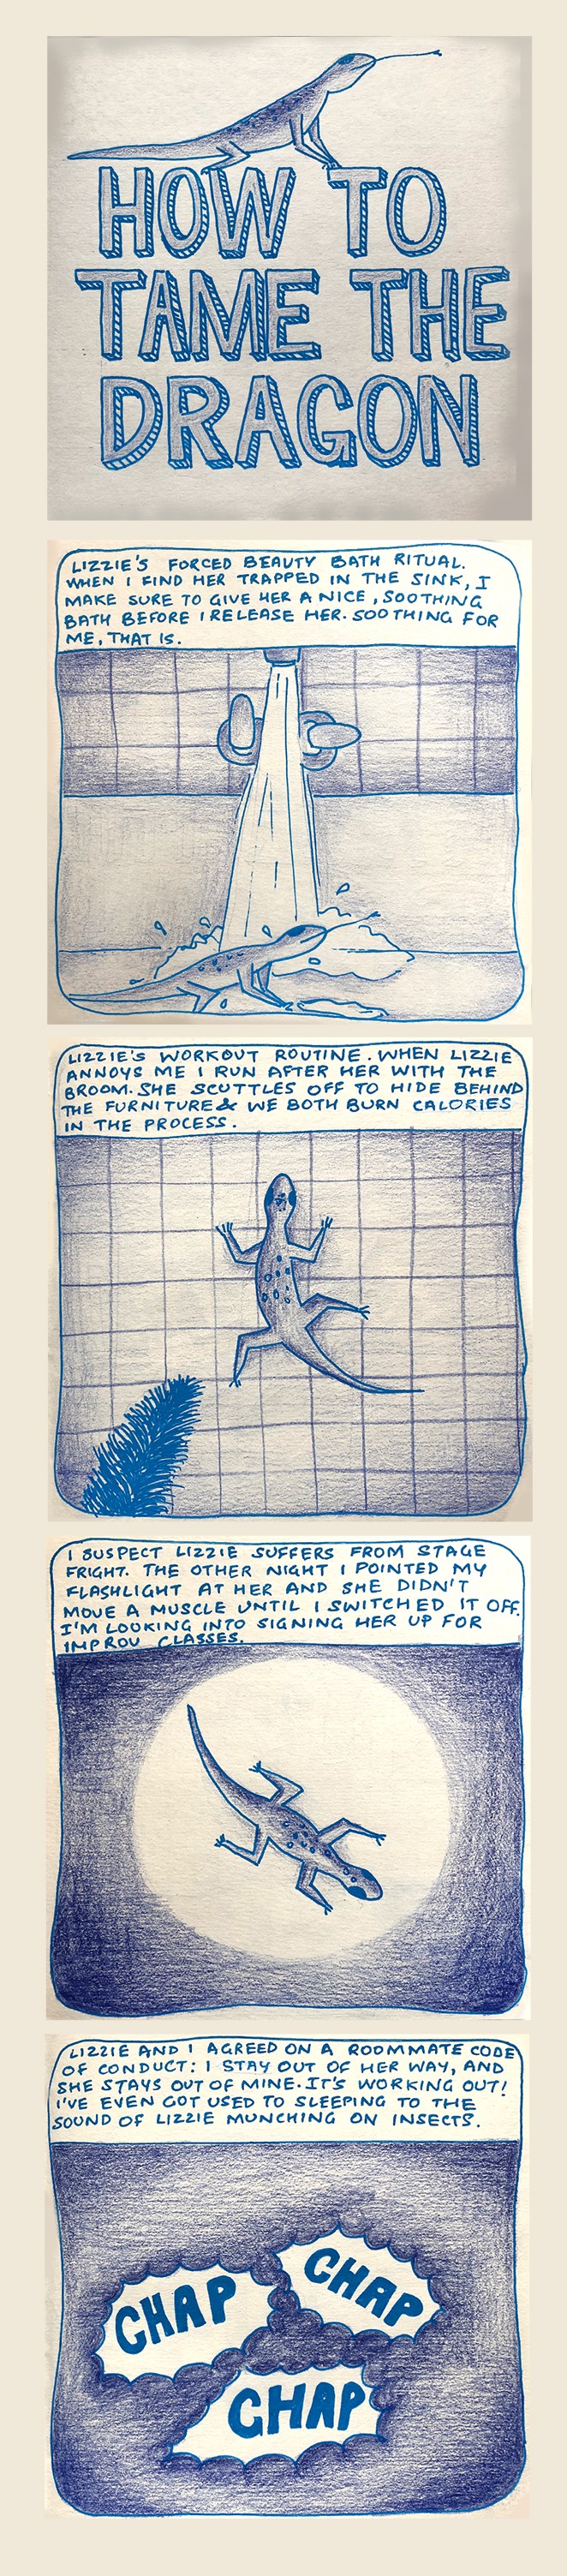 HOW TO
TAME THE
DRAGON
LIZZIE'S FORCED BEAUTY BATH RITUAL.
WHEN I FIND HER TRAPPED IN THE SINK, I
MAKE SURE TO GIVE HER A NICE, SOOTHING
BATH BEFORE I RELEASE HER. SOOTHING FOR
ME, THAT IS.
LIZZIE'S WORKOUT ROUTINE. WHEN LIZZIE
ANNOYS ME I RUN AFTER HER WITH THE
BROOM. SHE SCUTTLES OFF TO HIDE BEHIND
THE FURNITURE & WE BOTH BURN CALORIES
IN THE PROCESS.
I SUSPECT LIZZIE SUFFERS FROM STAGE
FRIGHT. THE OTHER NIGHT I POINTED MY
FLASHLIGHT AT HER AND SHE DIDN'T
MOVE A MUSCLE UNTIL I SWITCHED IT OFF.
I'M LOOKING INTO SIGNING HER UP FOR
IMPROV CLASSES.
LIZZIE AND I AGREED ON A ROOMMATE CODE
OF CONDUCT: I STAY OUT OF HER WAY, AND
SHE STAYS OUT OF MINE. IT'S WORKING OUT!
I'VE EVEN GOT USED TO SLEEPING TO THE
SOUND OF LIZZIE MUNCHING ON INSECTS.
CHAP
CHAP
CHAP